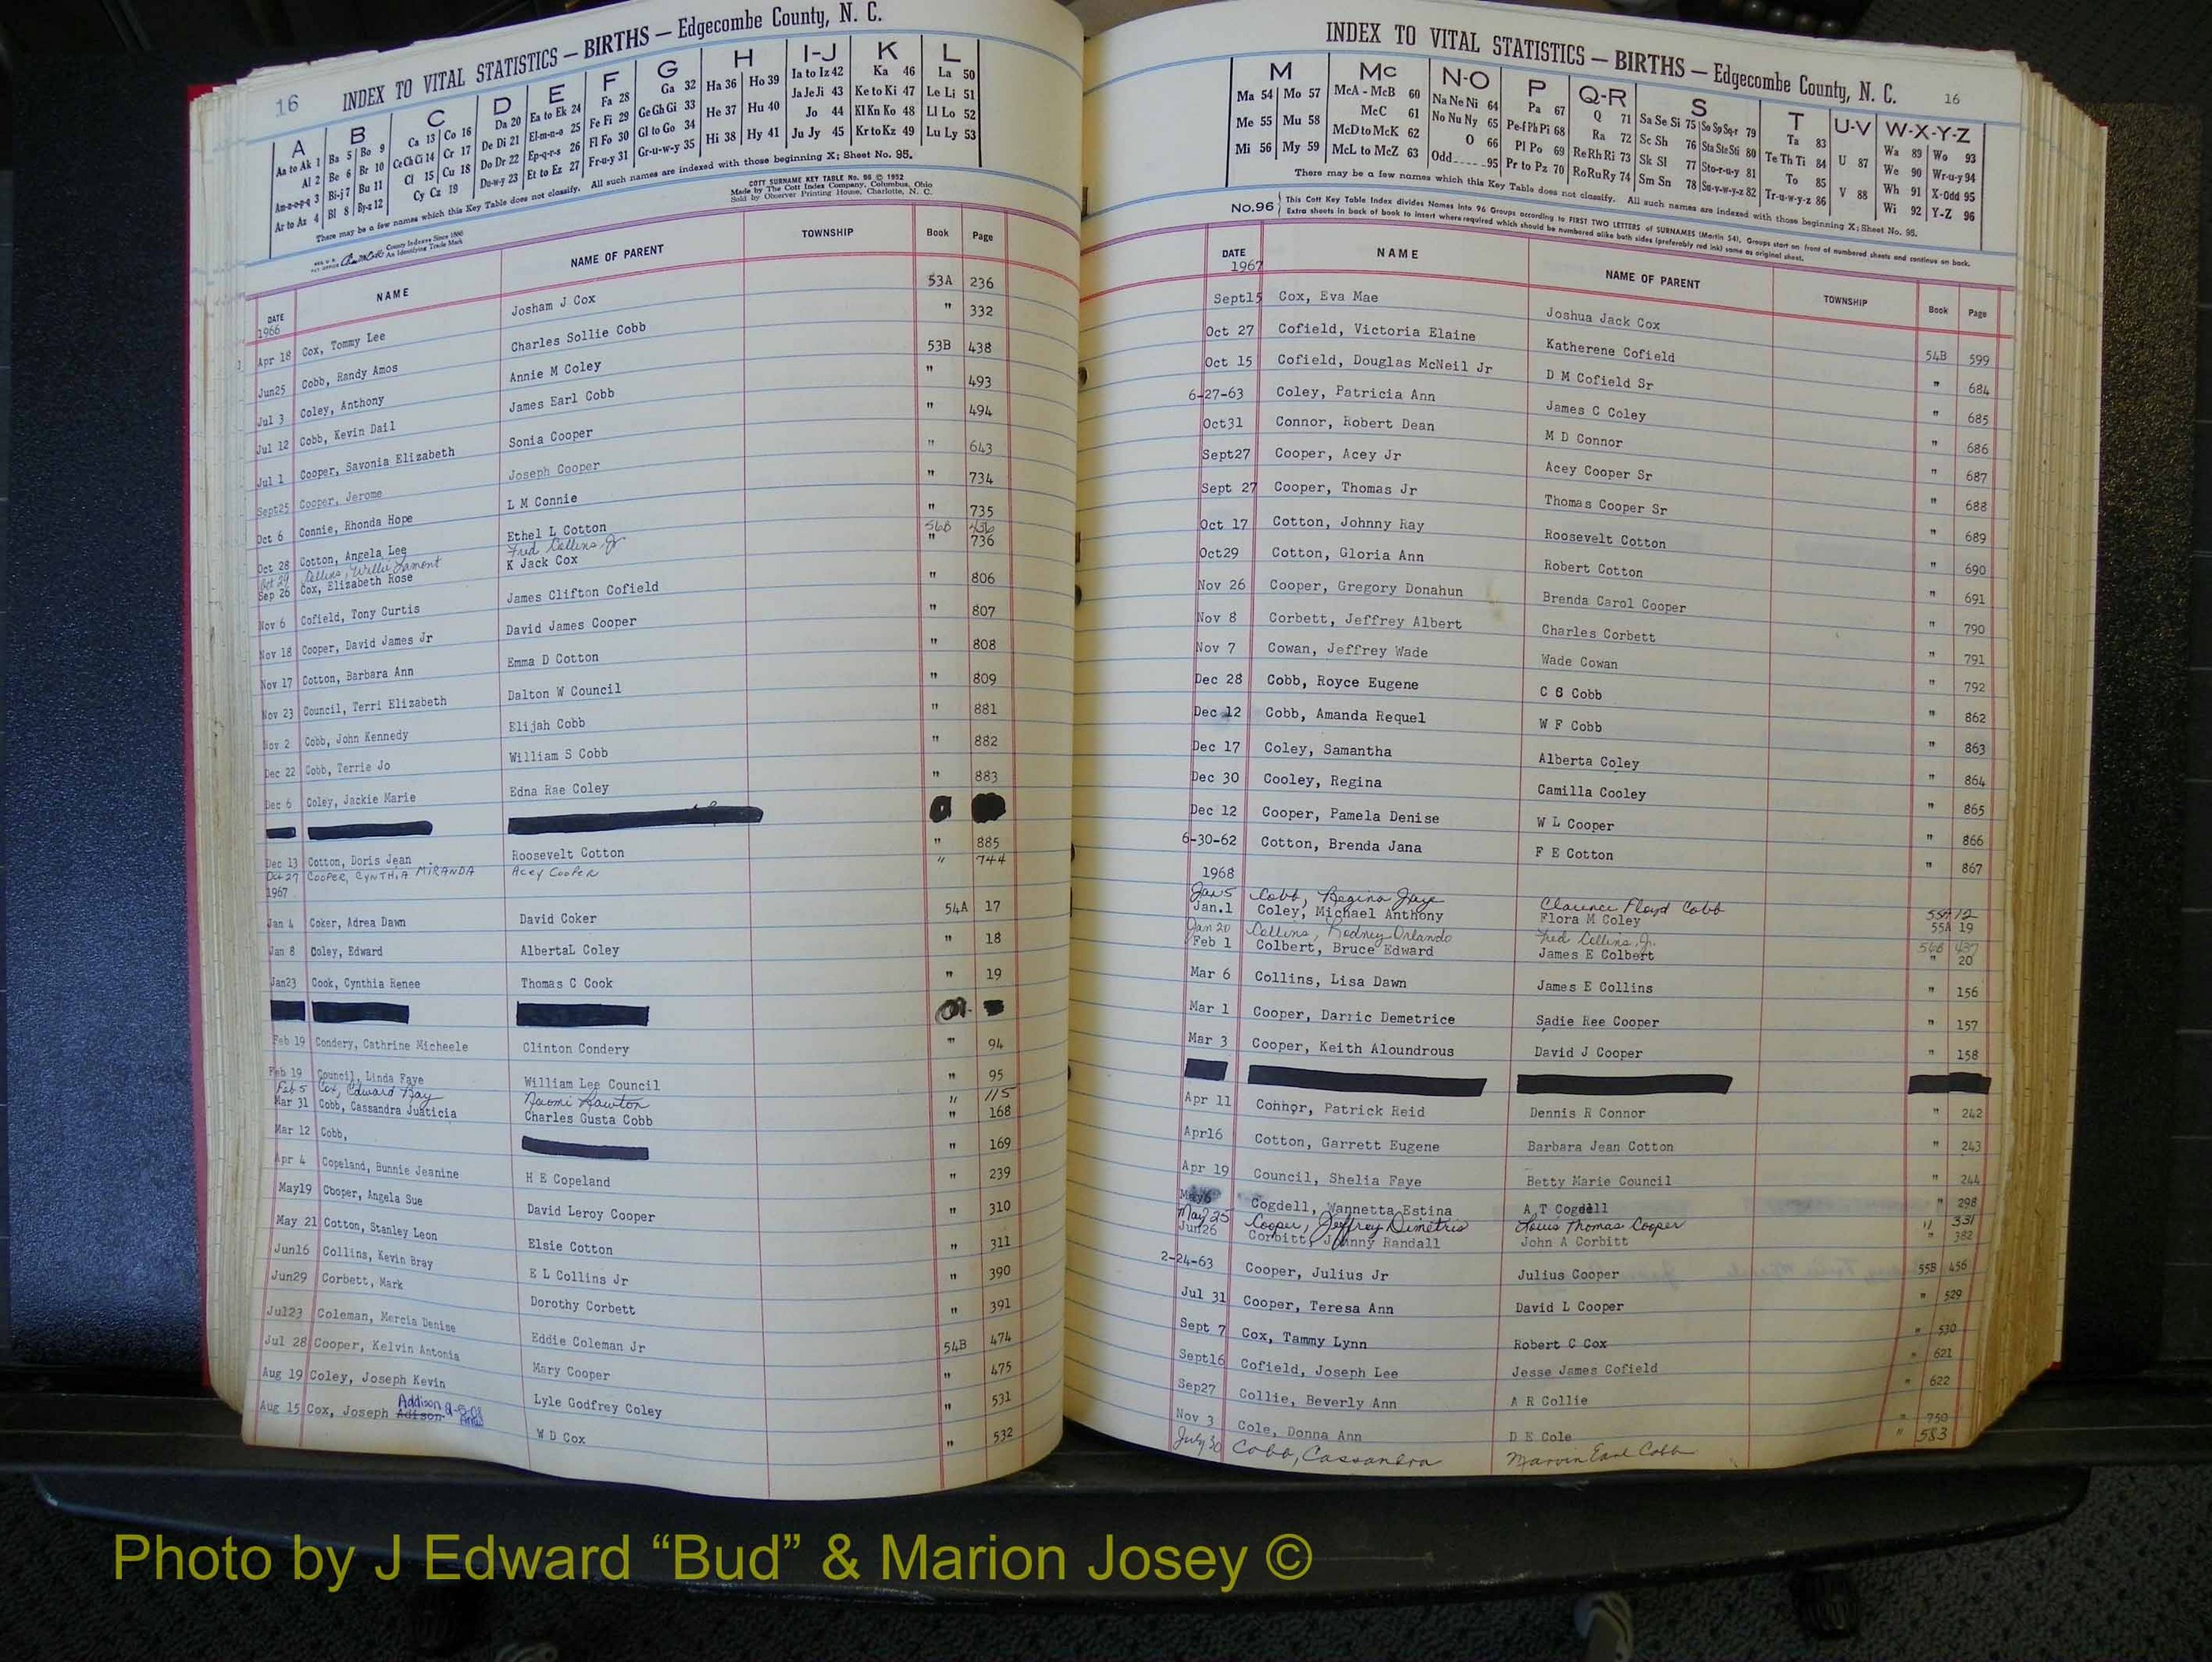 16 INDEX TO VITAL STATISTICS — BIRTHS — Edgecombe County, N. C.
A B C D E F G H I-J K L
Aa to Ak 1 Ba 5 Bo 9 Ca 13 Co 16 Da 20 Ea to Ek 24 Fa 28 Ga 32 Ha 36 Ho 39 Ia to Iz 42 Ka 46 La 50
Al 2 Be 6 Br 10 Ce Ch Ci 14 Cr 17 De Di 21 El-m-n-o 25 Fe Fi 29 Ge Gh Gi 33 He 37 Hu 40 Ja Je Ji 43 Ke to Ki 47 Le Li 51
Am-n-o-p-q 3 Bi-j 7 Bu 11 Cl 15 Cu 18 Do Dr 22 Ep-q-r-s 26 Fl Fo 30 Gl to Go 34 Hi 38 Hy 41 Jo 44 Kl Kn Ko 48 Ll Lo 52
Ar to Az 4 Bl 8 By-z 12 Cy Cz 19 Du-w-y 23 Et to Ez 27 Fr-u-y 31 Gr-u-w-y 35 Ju Jy 45 Kr to Kz 49 Lu Ly 53
There may be a few names which this Key Table does not classify. All such names are indexed with those beginning X; Sheet No. 95.
COTT SURNAME KEY TABLE No. 96 © 1952
Made by The Cott Index Company, Columbus, Ohio
Sold by Observer Printing House, Charlotte, N. C.
County Indexes Since 1888
An Identifying Trade Mark
DATE NAME NAME OF PARENT TOWNSHIP Book Page
1966
Apr 18 Cox, Tommy Lee Josham J Cox 53A 236
Jun25 Cobb, Randy Amos Charles Sollie Cobb " 332
Jul 3 Coley, Anthony Annie M Coley 53B 438
Jul 12 Cobb, Kevin Dail James Earl Cobb " 493
Jul 1 Cooper, Savonia Elizabeth Sonia Cooper " 494
Sept25 Cooper, Jerome Joseph Cooper " 643
Oct 6 Connie, Rhonda Hope L M Connie " 734
Oct 28 Cotton, Angela Lee Ethel L Cotton " 735
Oct 29 Collins, Willie Lamont Fred Collins, Jr 56B 436
Sep 26 Cox, Elizabeth Rose K Jack Cox " 736
Nov 6 Cofield, Tony Curtis James Clifton Cofield " 806
Nov 18 Cooper, David James Jr David James Cooper " 807
Nov 17 Cotton, Barbara Ann Emma D Cotton " 808
Nov 23 Council, Terri Elizabeth Dalton W Council " 809
Nov 2 Cobb, John Kennedy Elijah Cobb " 881
Dec 22 Cobb, Terrie Jo William S Cobb " 882
Dec 6 Coley, Jackie Marie Edna Rae Coley " 883
Dec 13 Cotton, Doris Jean Roosevelt Cotton " 885
Oct 27 COOPER, CYNTHIA MIRANDA Acey Cooper " 744
1967
Jan 4 Coker, Adrea Dawn David Coker 54A 17
Jan 8 Coley, Edward AlbertaL Coley " 18
Jan23 Cook, Cynthia Renee Thomas C Cook " 19
Feb 19 Condery, Cathrine Micheele Clinton Condery " 94
Feb 19 Council, Linda Faye William Lee Council " 95
Feb 5 Cox, Edward Ray Naomi " 115
Mar 31 Cobb, Cassandra Juaticia Charles Gusta Cobb " 168
Mar 12 Cobb, " 169
Apr 4 Copeland, Bunnie Jeanine H E Copeland " 239
May19 Cooper, Angela Sue David Leroy Cooper " 310
May 21 Cotton, Stanley Leon Elsie Cotton " 311
Jun16 Collins, Kevin Bray E L Collins Jr " 390
Jun29 Corbett, Mark Dorothy Corbett " 391
Jul23 Coleman, Mercia Denise Eddie Coleman Jr 54B 474
Jul 28 Cooper, Kelvin Antonia Mary Cooper " 475
Aug 19 Coley, Joseph Kevin Lyle Godfrey Coley " 531
Addison 9-5-08
Aug 15 Cox, Joseph Adison W D Cox " 532
INDEX TO VITAL STATISTICS — BIRTHS — Edgecombe County, N. C. 16
M Mc N-O P Q-R S T U-V W-X-Y-Z
Ma 54 Mo 57 McA - McB 60 Na Ne Ni 64 Pa 67 Q 71 Sa Se Si 75 So Sp Sq-r 79 Ta 83 U 87 Wa 89 Wo 93
Me 55 Mu 58 McC 61 No Nu Ny 65 Pe-f Ph Pi 68 Ra 72 Sc Sh 76 Sta Ste Sti 80 Te Th Ti 84 V 88 We 90 Wr-u-y 94
Mi 56 My 59 McD to McK 62 O 66 Pl Po 69 Re Rh Ri 73 Sk Sl 77 Sto-r-u-y 81 To 85 Wh 91 X-Odd 95
McL to McZ 63 Odd 95 Pr to Pz 70 Ro Ru Ry 74 Sm Sn 78 Su-v-w-y-z 82 Tr-u-w-y-z 86 Wi 92 Y-Z 96
There may be a few names which this Key Table does not classify. All such names are indexed with those beginning X; Sheet No. 95.
No.96 This Cott Key Table Index divides Names into 96 Groups according to FIRST TWO LETTERS of SURNAMES (Martin 54). Groups start on front of numbered sheets and continue on back.
Extra sheets in back of book to insert where required which should be numbered alike both sides (preferably red ink) same as original sheet.
DATE NAME NAME OF PARENT TOWNSHIP Book Page
1967
Sept15 Cox, Eva Mae Joshua Jack Cox 54B 599
Oct 27 Cofield, Victoria Elaine Katherene Cofield " 684
Oct 15 Cofield, Douglas McNeil Jr D M Cofield Sr " 685
6-27-63 Coley, Patricia Ann James C Coley " 686
Oct31 Connor, Robert Dean M D Connor " 687
Sept27 Cooper, Acey Jr Acey Cooper Sr " 688
Sept 27 Cooper, Thomas Jr Thomas Cooper Sr " 689
Oct 17 Cotton, Johnny Ray Roosevelt Cotton " 690
Oct29 Cotton, Gloria Ann Robert Cotton " 691
Nov 26 Cooper, Gregory Donahun Brenda Carol Cooper " 790
Nov 8 Corbett, Jeffrey Albert Charles Corbett " 791
Nov 7 Cowan, Jeffrey Wade Wade Cowan " 792
Dec 28 Cobb, Royce Eugene C S Cobb " 862
Dec 12 Cobb, Amanda Requel W F Cobb " 863
Dec 17 Coley, Samantha Alberta Coley " 864
Dec 30 Cooley, Regina Camilla Cooley " 865
Dec 12 Cooper, Pamela Denise W L Cooper " 866
6-30-62 Cotton, Brenda Jana F E Cotton " 867
1968
Jan 5 Cobb, Regina Faye Clarence Floyd Cobb 55A 12
Jan.1 Coley, Michael Anthony Flora M Coley 55A 19
Jan 20 Collins, Rodney Orlando Fred Collins, Jr. 56B 437
Feb 1 Colbert, Bruce Edward James E Colbert " 20
Mar 6 Collins, Lisa Dawn James E Collins " 156
Mar 1 Cooper, Darric Demetrice Sadie Ree Cooper " 157
Mar 3 Cooper, Keith Aloundrous David J Cooper " 158
Apr 11 Connor, Patrick Reid Dennis R Connor " 242
Apr16 Cotton, Garrett Eugene Barbara Jean Cotton " 243
Apr 19 Council, Shelia Faye Betty Marie Council " 244
May6 Cogdell, Wannetta Estina A T Cogdell " 298
May 25 Cooper, Jeffrey Dimetris Louis Thomas Cooper " 331
Jun26 Corbitt, Johnny Randall John A Corbitt " 382
2-24-63 Cooper, Julius Jr Julius Cooper 55B 456
Jul 31 Cooper, Teresa Ann David L Cooper " 529
Sept 7 Cox, Tammy Lynn Robert C Cox " 530
Sept16 Cofield, Joseph Lee Jesse James Cofield " 621
Sep27 Collie, Beverly Ann A R Collie " 622
Nov 3 Cole, Donna Ann D E Cole " 750
July 30 Cobb, Cassandra Marvin Earl Cobb " 583
Photo by J Edward “Bud” & Marion Josey ©